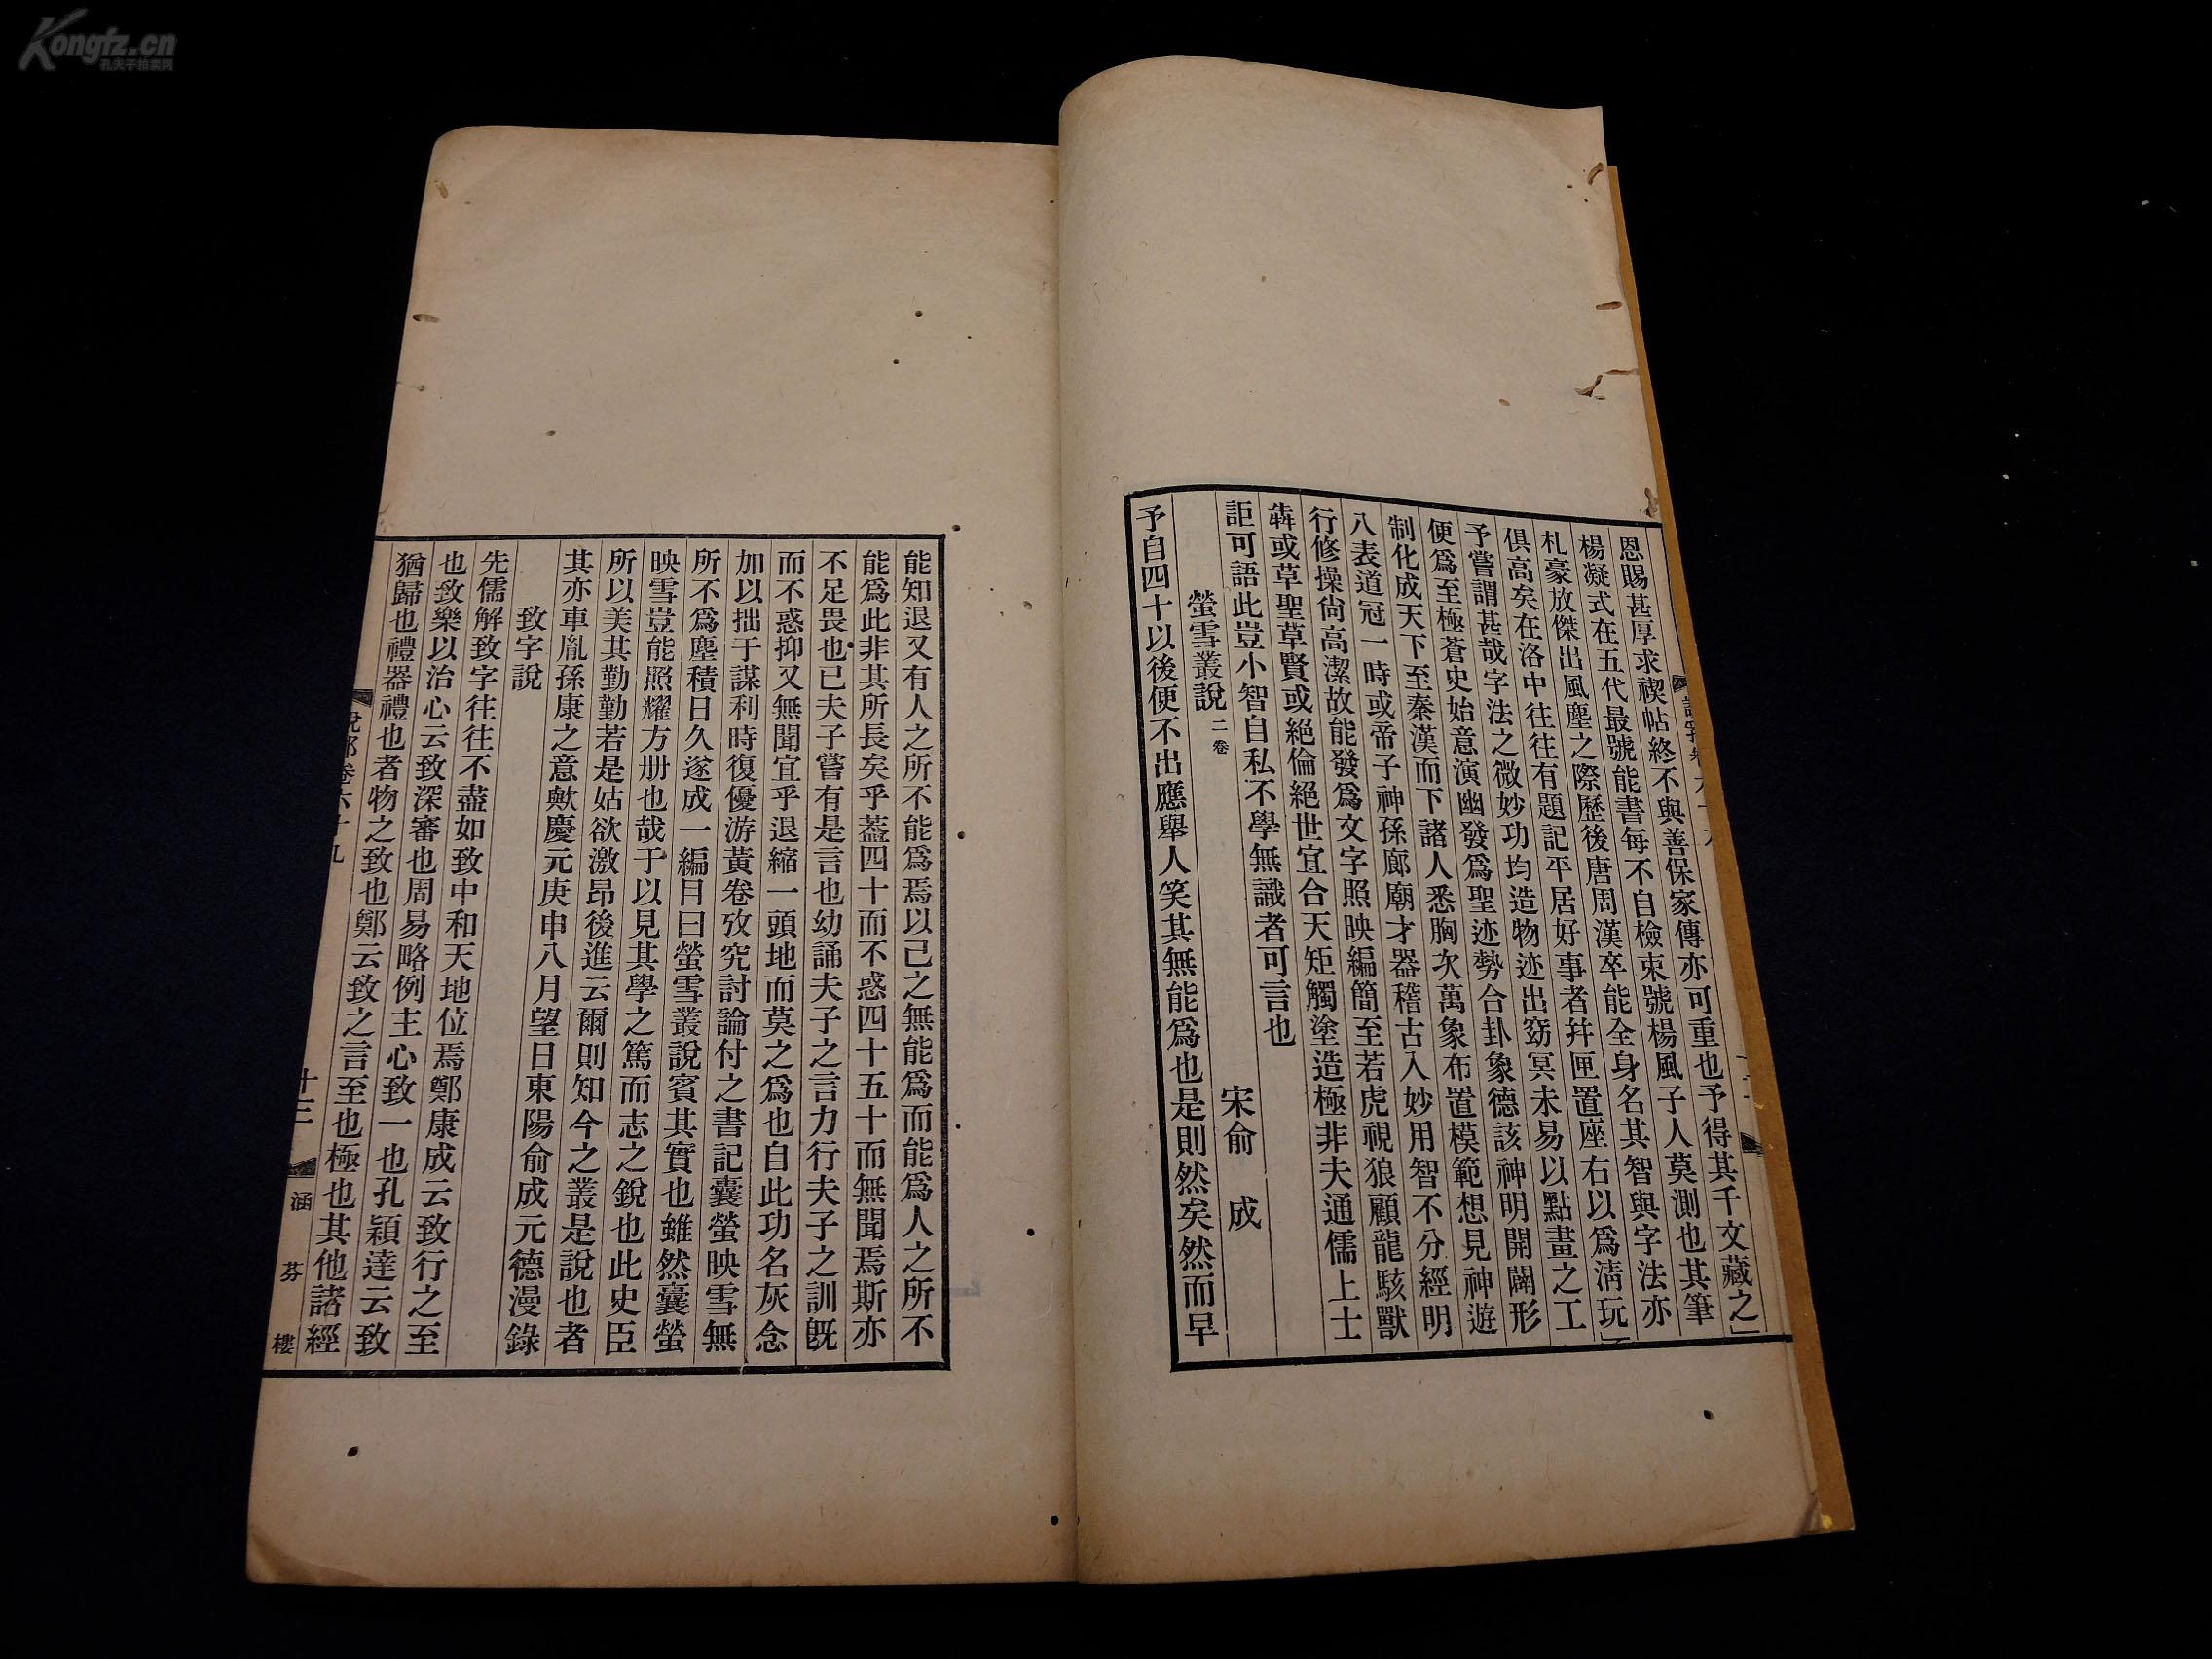 恩賜甚厚求禊帖終不與善保家傳亦可重也予得其千文藏之
楊凝式在五代最號能書每不自檢束號楊風子人莫測也其筆
札豪放傑出風塵之際歷後唐周漢卒能全身名其智與字法亦
俱高矣在洛中往往有題記平居好事者幷匣置座右以爲淸玩
予嘗謂甚哉字法之微妙功均造物迹出窈冥未易以點畫之工
便爲至極蒼史始意演幽發爲聖迹勢合卦象德該神明開闢形
制化成天下至秦漢而下諸人悉胸次萬象布置模範想見神遊
八表道冠一時或帝子神孫廊廟才器稽古入妙用智不分經明
行修操尙高潔故能發爲文字照映編簡至若虎視狼顧龍駭獸
犇或草聖草賢或絕倫絕世宜合天矩觸塗造極非夫通儒上士
詎可語此豈小智自私不學無識者可言也
螢雪叢說 二卷
宋俞 成
予自四十以後便不出應舉人笑其無能爲也是則然矣然而早
能知退又有人之所不能爲焉以己之無能爲而能爲人之所不
能爲此非其所長矣乎蓋四十而不惑四十五十而無聞焉斯亦
不足畏也已夫子嘗有是言也幼誦夫子之言力行夫子之訓旣
而不惑抑又無聞宜乎退縮一頭地而莫之爲也自此功名灰念
加以拙于謀利時復優游黃卷攷究討論付之書記囊螢映雪無
所不爲塵積日久遂成一編目曰螢雪叢說賓其實也雖然囊螢
映雪豈能照耀方册也哉于以見其學之篤而志之銳也此史臣
所以美其勤勤若是姑欲激昂後進云爾則知今之叢是說也者
其亦車胤孫康之意歟慶元庚申八月望日東陽俞成元德漫錄
致字說
先儒解致字往往不盡如致中和天地位焉鄭康成云致行之至
也致樂以治心云致深審也周易略例主心致一也孔穎達云致
猶歸也禮器禮也者物之致也鄭云致之言至也極也其他諸經
說郛卷六十九
十三
涵芬樓
Kongfz.cn
孔夫子拍卖网